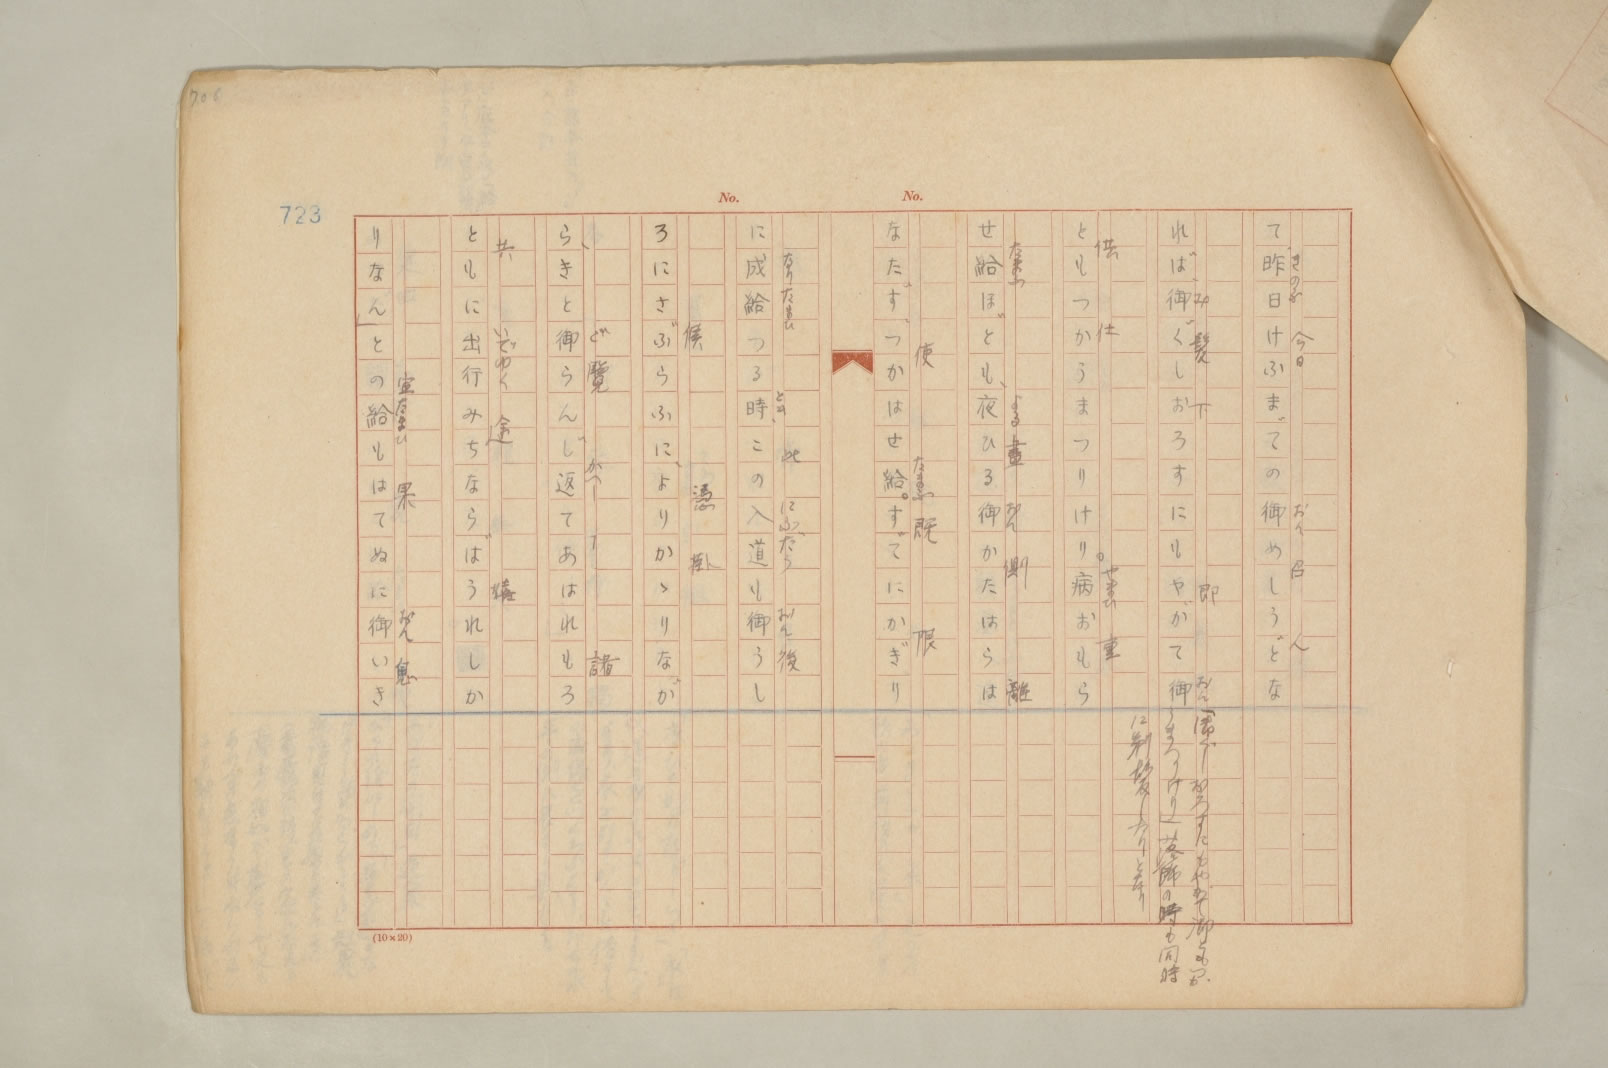 706
723
No.
No.
て、昨日けふまでの御めしうどな
きのふ 今日 おん 召 ん
れば、御ぐしおろすにもやがて御
み 髪 下 即 おん
ともつかうまつりけり。病おもら
供 仕 やまひ 重
せ給ほども、夜ひる御かたはらは
たまふ よる 晝 おん 側 離
なたず、つかはせ給。すでにかぎり
使 たまふ 既 限
に成給つる時、この入道も御うし
なりたまひ とき 此 にふだう おん 後
ろにさぶらふに、よりかゝりなが
候 憑 掛
ら、きと御らんじ返てあはれもろ
ご 覧 かへし 諸
ともに出行みちならばうれしか
共 いでゆく 途 嬉
りなん」との給もはてぬに御いき
宣 たまひ 果 おん 息
落飾の時も同時
に剃髪したりとなり
(10×20)